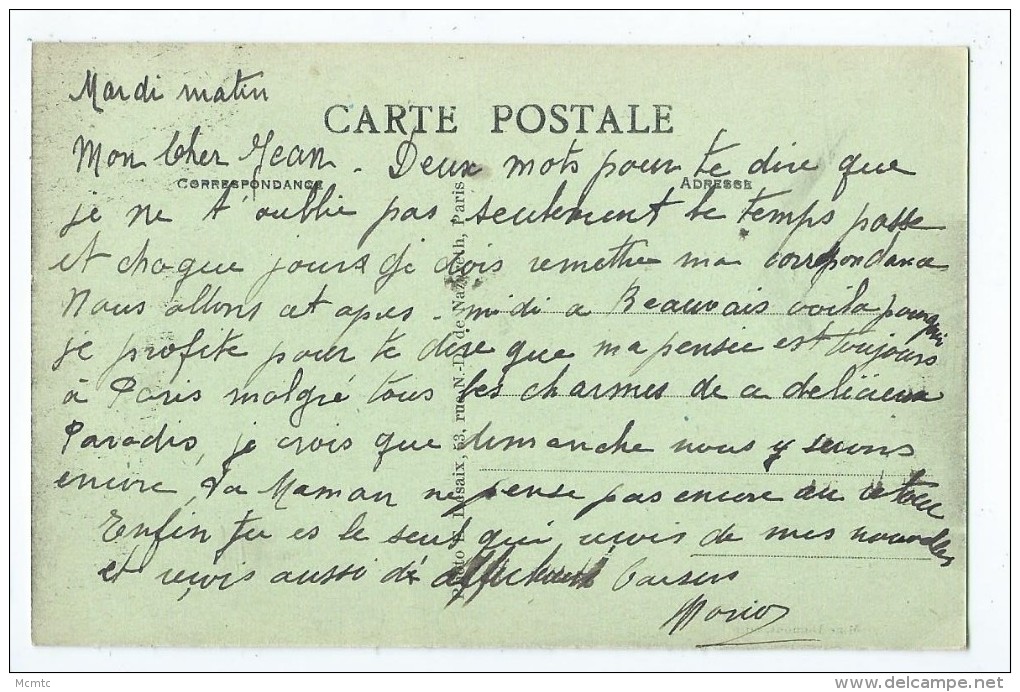 Mardi matin
CARTE POSTALE
Mon Cher Jean. Deux mots pour te dire que
CORRESPONDANCE
ADRESSE
je ne t'oublie pas seulement le temps passe
et chaque jours je dois remettre ma correspondance
Nous allons cet apres-midi a Beauvais voila pourquoi
je profite pour te dire que ma pensée est toujours
à Paris malgré tous les charmes de ce delicieux
Paradis, je crois que dimanche nous y serons
encore, ta Maman ne pense pas encore au retour
Enfin tu es le seul qui reçois de mes nouvelles
et reçois aussi de affectueux baisers
Mario
Photo E. Desaix, 53, rue N.-D. de Nazareth, Paris
Mcmtc
delcampe.net